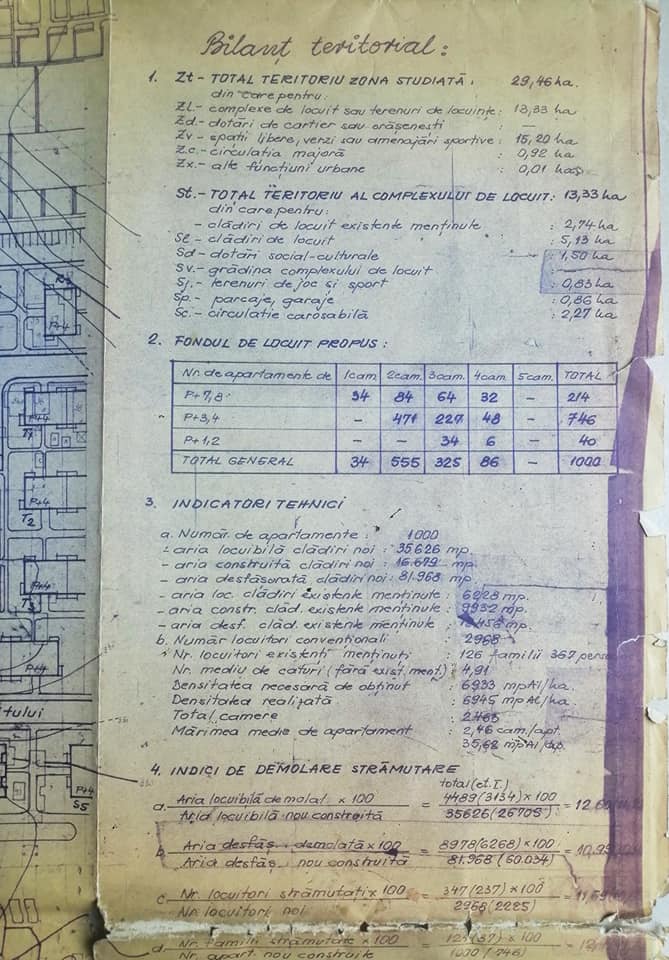 Bilanț teritorial:
1. Zt - TOTAL TERITORIU ZONA STUDIATĂ: 29,46 ha.
din care pentru:
Zl.- complexe de locuit sau terenuri de locuințe: 13,33 ha
Zd.- dotări de cartier sau orășenești : —
Zv - spații libere, verzi sau amenajări sportive: 15,20 ha
Zc.- circulația majoră : 0,92 ha
Zx.- alte funcțiuni urbane : 0,01 ha
St.- TOTAL TERITORIU AL COMPLEXULUI DE LOCUIT: 13,33 ha
din care pentru:
- clădiri de locuit existente menținute : 2,74 ha
Sl - clădiri de locuit : 5,13 ha
Sd - dotări social-culturale : 1,50 ha
Sv.- grădina complexului de locuit :
Sj.- terenuri de joc și sport : 0,83 ha
Sp. - parcaje, garaje : 0,86 ha
Sc.- circulație carosabilă : 2,27 ha
2. FONDUL DE LOCUIT PROPUS:
Nr. de apartamente de 1cam. 2cam. 3cam. 4cam 5cam. TOTAL
P+7,8 34 84 64 32 – 214
P+3,4 – 471 227 48 – 746
P+1,2 – – 34 6 – 40
TOTAL GENERAL 34 555 325 86 – 1000
3. INDICATORI TEHNICI
a. Număr de apartamente : 1000
- aria locuibilă clădiri noi : 35626 mp.
- aria construită clădiri noi : 16.679 mp.
- aria desfășurată clădiri noi : 81.968 mp.
- aria loc. clădiri existente menținute : 6228 mp.
- aria constr. clăd. existente menținute : 9932 mp.
- aria desf. clăd. existente menținute : mp.
b. Număr locuitori convenționali : 2968
Nr. locuitori existenți menținuți : 126 familii 367
Nr. mediu de caturi (fără exist. menț.) : 4,91
Densitatea necesară de obținut : 6933 mpAl/ha.
Densitatea realizată : 6945 mpAl/ha.
Total camere :
Mărimea medie de apartament : 2,46 cam/apt.
35,62 mpAl/ap.
4. INDICI DE DEMOLARE STRĂMUTARE
total (et. I.)
a. Aria locuibilă demolat. x 100 = 4489 (3134) x 100 = 12,60
Aria locuibilă nou construită 35626 (26705)
b. Aria desfăș. demolată x 100 = 8978 (6268) x 100 =
Aria desfăș. nou construită 81.968 (60.034)
c. Nr. locuitori strămutați x 100 = 347 (237) x 100 =
Nr. locuitori noi 2968 (2225)
d. Nr. familii strămutate x 100 = (87) x 100 =
Nr. apart. nou construite 1000 (746)
P+4
P+4
T1
P+4
T2
P+4
T3
P+4
tului
P+4
S5